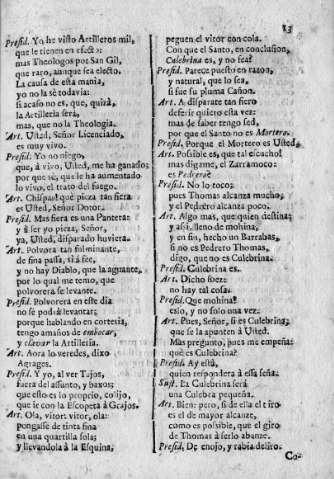 83
Presid. Yo he visto Artilleros mil,
que le tienen en efecto:
mas Theologos por San Gil,
que raro, aunque sea electo.
La causa de esta mania,
yo no la sè todavia:
si acaso no es, que, quizà,
la Artilleria serà,
mas, que no la Theologia.
Art. Usted, Señor Licenciado,
es muy vivo.
Presid. Yo no niego,
que, à vivo, Usted, me ha ganado;
por que sè, que le ha aumentado
lo vivo, el trato del fuego.
Art. Chispas! què pieza tan fiera
es Usted, Señor Dotor.
Presid. Mas fiera es una Pantera:
y à ser yo pieza, Señor,
ya, Usted, disparado huviera.
Art. Polvora tan fulminante,
de fina passa, si à fee,
y no hay Diablo, que la aguante,
por lo qual me temo, que
polvorera se levante.
Presid. Polvorera en este dia
no se podrà levantar;
porque hablando en cortesia,
tengo amaños de embocar,
y clavar la Artilleria.
Art. Aora lo veredes, dixo
Agrages.
Presid. Y yo, al ver Tajos,
fuera del assunto, y baxos;
que esto es lo proprio, colijo,
que ir con la Escopeta à Grajos.
Art. Ola, vitor: vitor, ola:
pongasse de tinta fina
en una quartilla sola;
y llevandola à la Esquina,
peguen el vitor con cola.
Con que el Santo, en conclusion,
Culebrina es, y no sea?
Presid. Parece puesto en razon,
y natural, que lo sea,
si fue su pluma Cañon.
Art. A disparate tan fiero
deferir quiero esta vez:
mas de saber tengo sed,
por que el Santo no es Mortero.
Presid. Porque el Mortero es Usted.
Art. Possible es, que tal escucho!
mas digame, el Zarramoco:
es Pedrero?
Presid. No lo toco:
pues Thomas alcanza mucho,
y el Pedrero alcanza poco.
Art. Algo mas, que quien destina;
y assi, lleno de mohina,
y en fin, hecho un Barrabas,
si no es Pedrero Thomas,
digo, que no es Culebrina.
Presid. Culebrina es.
Art. Dicho soez:
no hay tal cosa.
Presid. Que mohina!
eslo, y no solo una vez.
Art. Pues, Señor, si es Culebrina,
que se la apunten à Usted.
Mas pregunto, pues me empeñas:
què es Culebrina?
Presid. Ay està,
quien respondera à essa seña.
Sust. Es Culebrina serà
una Culebra pequeña.
Art. Bien: pero, si de ella el tiro
es el de mayor alcanze,
como es possible, que el giro
de Thomas à serlo abanze.
Presid. De enojo, y rabia deliro.
Co-